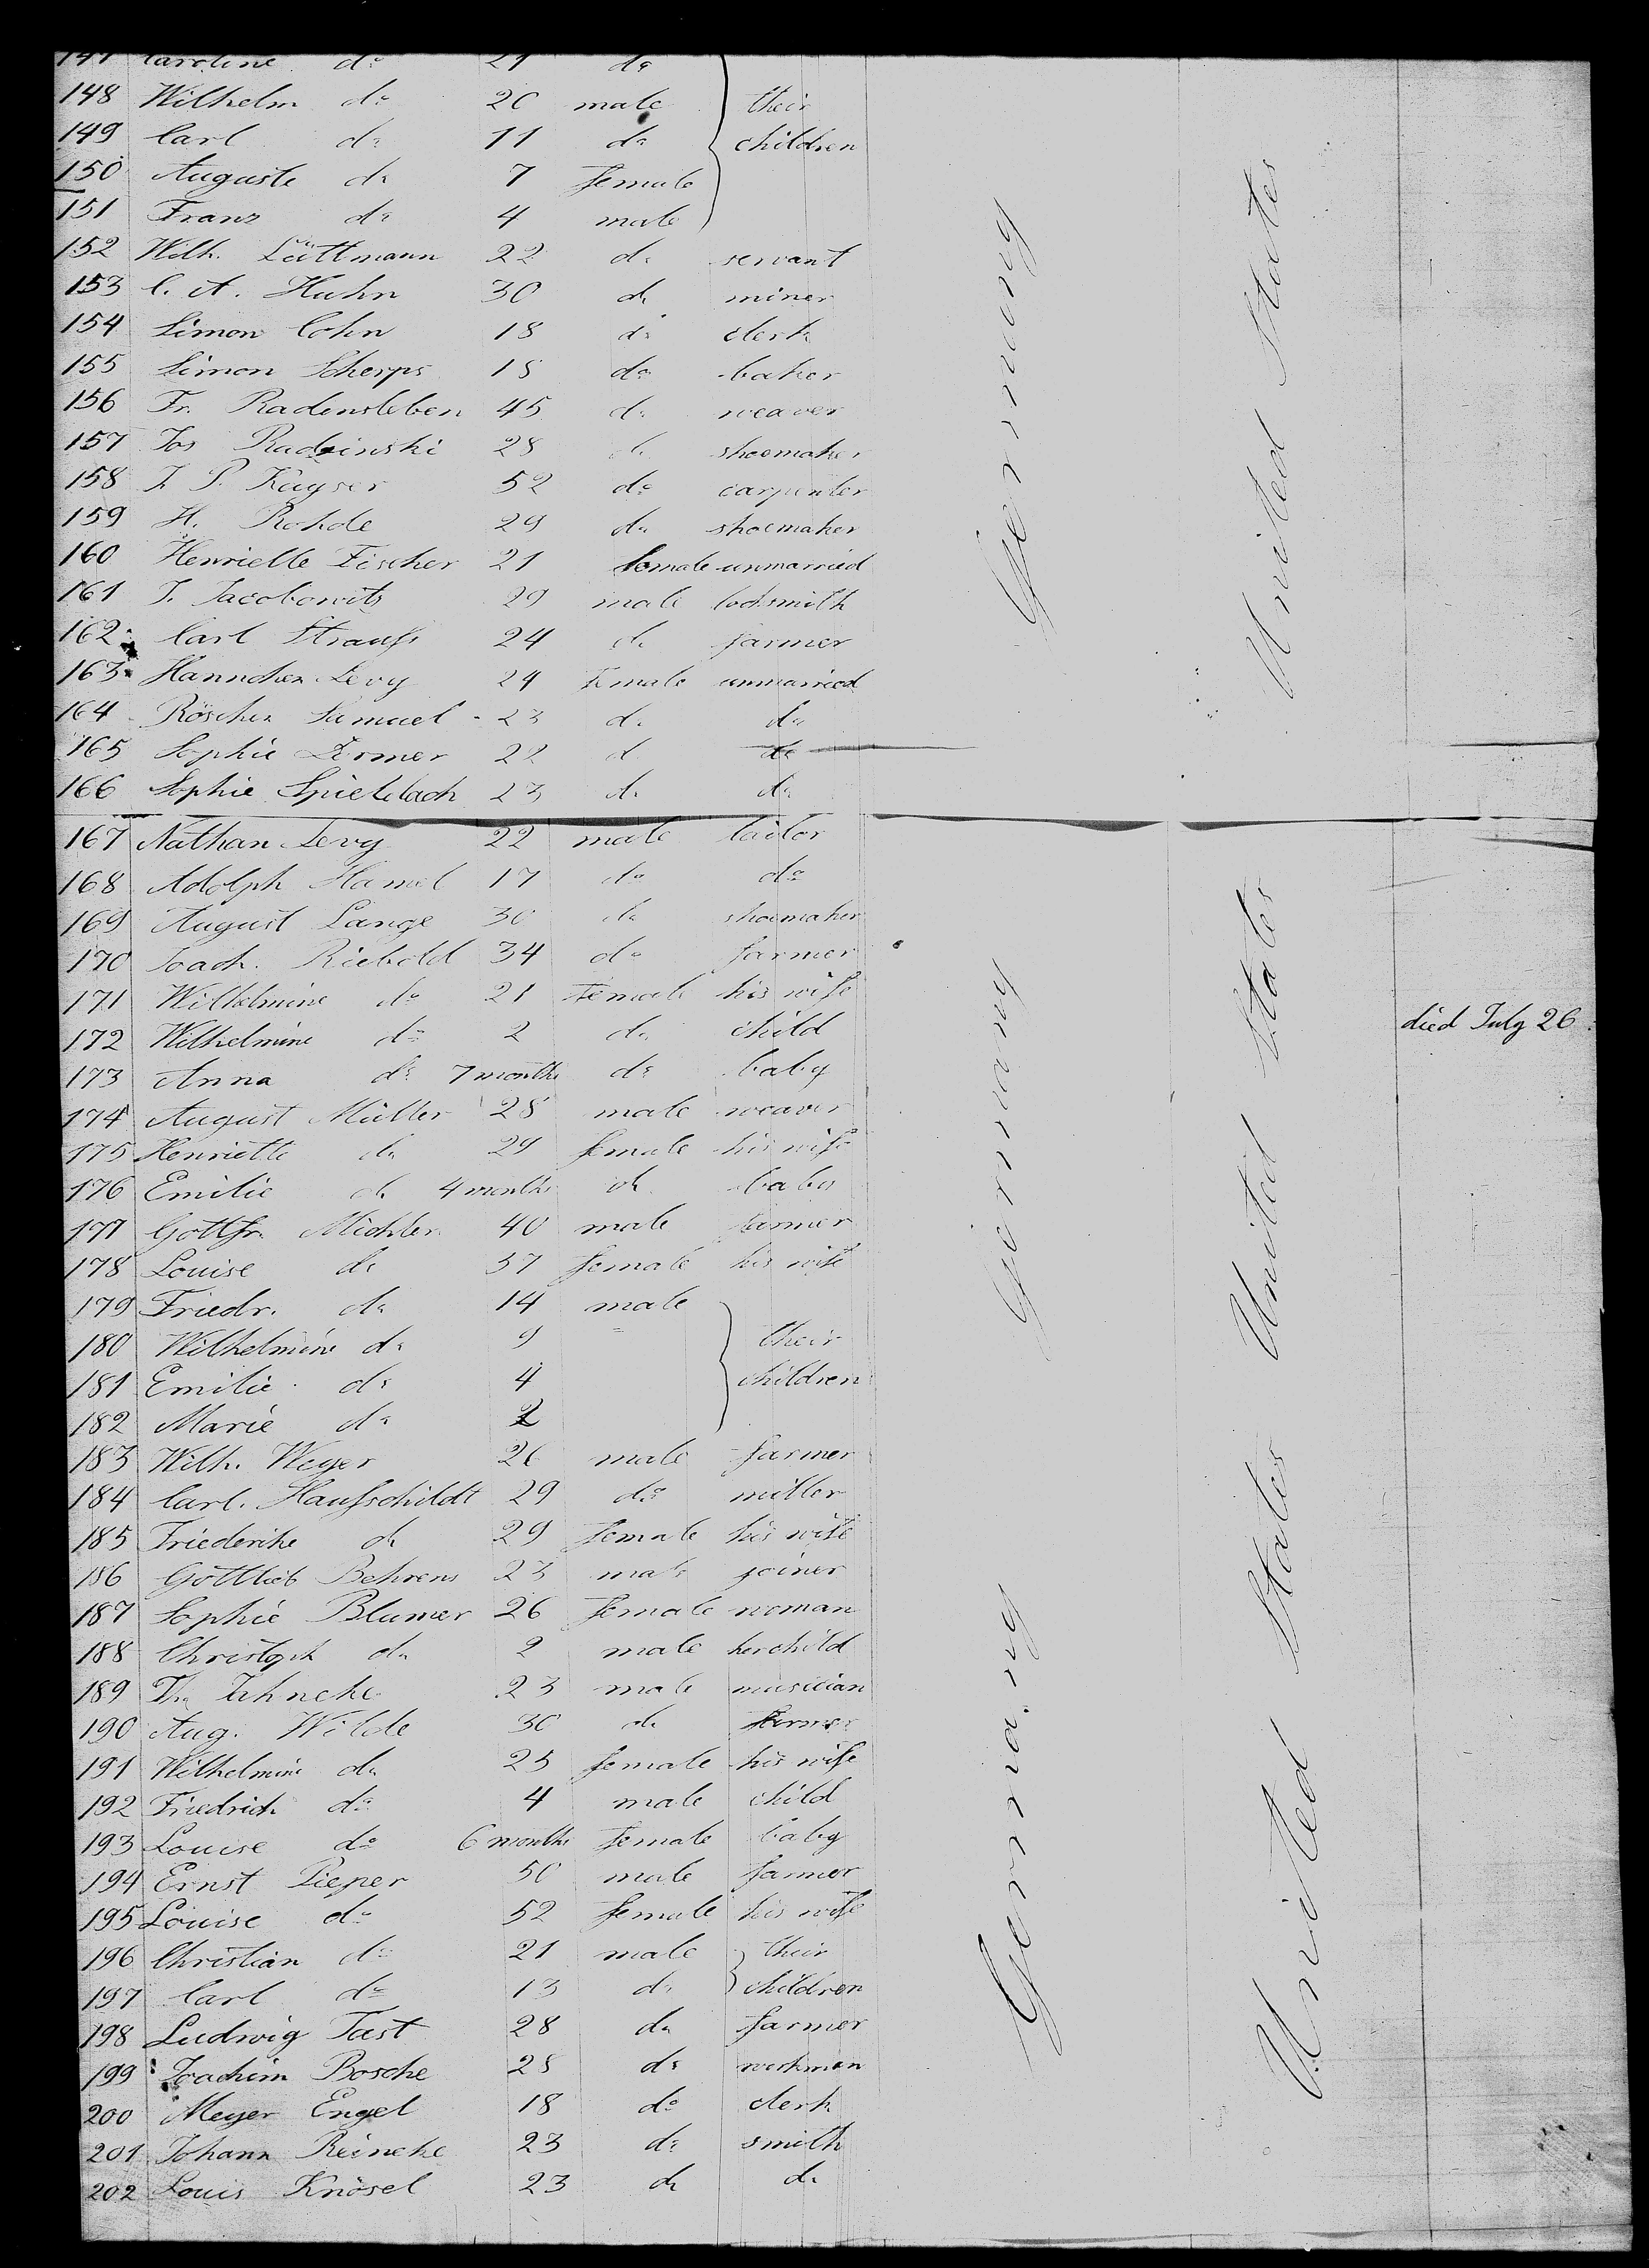 147 Caroline do 21 do
148 Wilhelm do 20 male their
149 Carl do 11 do children
150 Auguste do 7 female
151 Franz do 4 male
152 Wilh. Lüttmann 22 do servant
153 C. A. Huhn 30 do miner
154 Simon Cohn 18 do clerk
155 Simon Scherps 18 do baker
156 Fr. Radensleben 45 do weaver
157 Jos Radzinski 28 do shoemaker
158 J. P. Kayser 52 do carpenter
159 H. Rohde 29 do shoemaker
160 Henriette Fischer 21 female unmarried
161 J. Jacobowitz 29 male locksmith
162 Carl Strauß 24 do farmer
163 Hannchen Levy 24 female unmarried
164 Röschen Samuel 23 do do
165 Sophie Dermer 22 do do
166 Sophie Spielelach 23 do do
Germany
United States
167 Nathan Levy 22 male tailor
168 Adolph Hamel 17 do do
169 August Lange 30 do shoemaker
170 Joach. Riebold 34 do farmer
171 Wilhelmine do 21 female his wife
172 Wilhelmine do 2 do child died July 26.
173 Anna do 7 months do baby
174 August Müller 28 male weaver
175 Henriette do 29 female his wife
176 Emilie do 4 months do baby
177 Gottfr. Michler 40 male farmer
178 Louise do 37 female his wife
179 Friedr. do 14 male
180 Wilhelmine do 9 their
181 Emilie do 4 children
182 Marie do 2
Germany
United States
183 Wilh. Weyer 26 male farmer
184 Carl. Haußschildt 29 do miller
185 Friederike do 29 female his wife
186 Gottlieb Behrens 23 male joiner
187 Sophie Blumer 26 female woman
188 Christoph do 2 male her child
189 Th. Jahncke 23 male musician
190 Aug. Wilde 30 do farmer
191 Wilhelmine do 25 female his wife
192 Friedrich do 4 male child
193 Louise do 6 months female baby
194 Ernst Pieper 50 male farmer
195 Louise do 52 female his wife
196 Christian do 21 male their
197 Carl do 13 do children
198 Ludwig Tast 28 do farmer
199 Joachim Bosche 28 do workman
200 Meyer Engel 18 do clerk
201 Johann Reincke 23 do smith
202 Louis Knösel 23 do do
Germany
United States